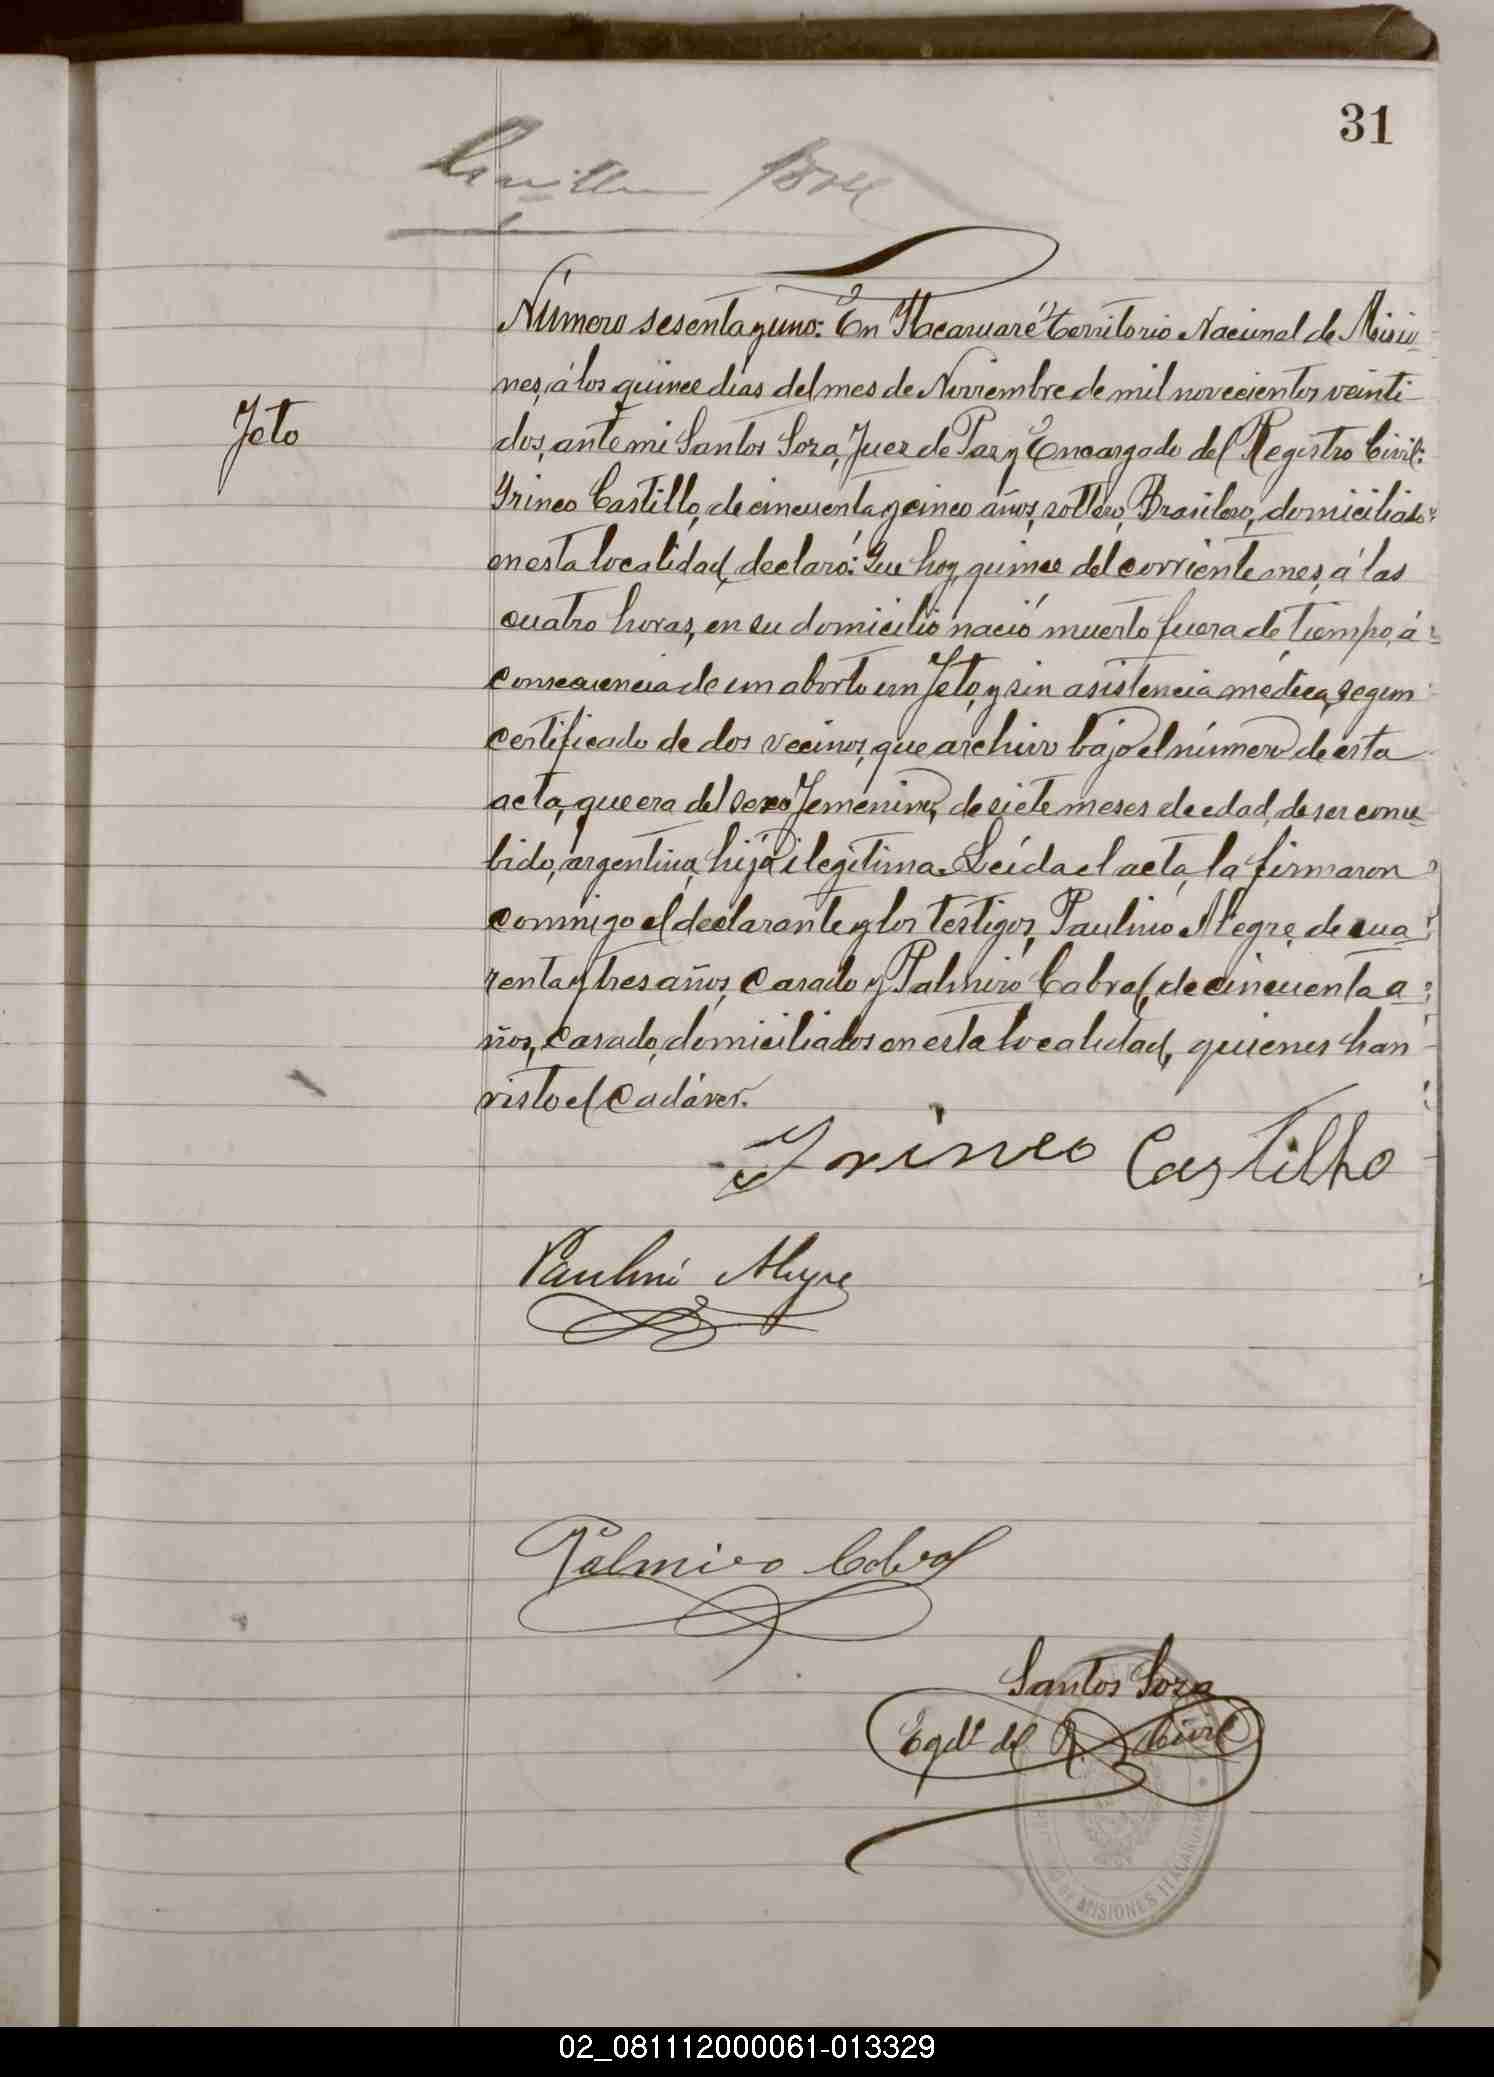 31
Número sesenta y uno: En Itacaruaré Territorio Nacional de Misio-
nes, á los quince dias del mes de Noviembre de mil novecientos veinti-
Feto
dos, ante mi Santos Soza, Juez de Paz y Encargado del Registro Civil:
Yrineo Castillo, de cincuenta y cinco años, soltero, Brasilero, domiciliado
en esta localidad, declaró: Que hoy, quince del corriente mes, á las
cuatro horas, en su domicilio nació muerto fuera de tiempo, á
consecuencia de un aborto un Feto, y sin asistencia médica, segun
certificado de dos vecinos, que archivo bajo el número de esta
acta, que era del sexo Femenino, de siete meses de edad, de ser conce-
bido, argentina, hija ilegítima. Leida el acta, la firmaron
conmigo el declarante y los testigos, Paulino Alegre, de cua-
renta y tres años, casado y Palmiro Cabral, de cincuenta a-
ños, casado, domiciliados en esta localidad, quienes han
visto el cadáver.
Yrineo Castilho
Paulino Alegre
Palmiro Cabral
Santos Soza
Egdo. del R. Civil
DE MISIONES ITACARUARE
02_081112000061-013329